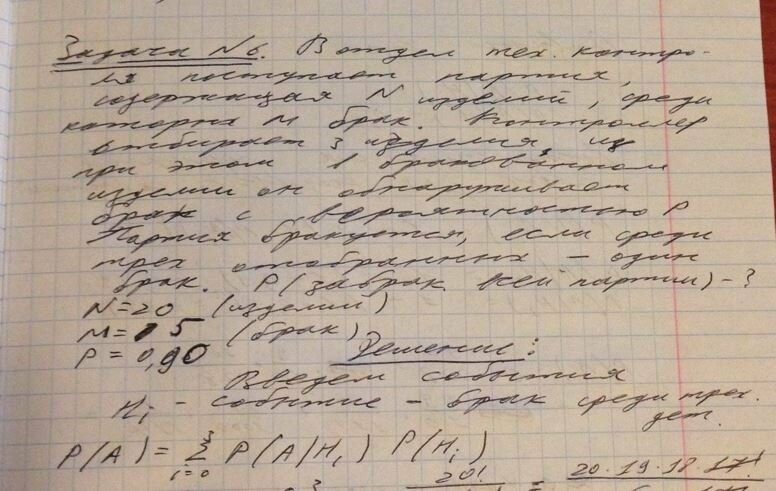 Задача N 6. В отдел тех. контро-
ля поступает партия,
содержащая N изделий, среди
которых M брак. Контроллер
отбирает 3 изделия из
при этом в бракованном
изделии он обнаруживает
брак с вероятностью P
Партия бракуется, если среди
трех отобранных – один
брак. P(забрак. всей партии) – ?
N=20 (изделий)
M=5 (брак)
P=0,90 Решение:
Введем события
Hi – событие – брак среди трех.
дет.
P(A) = Σ P(A/Hi) P(Hi)
3
i=0
20!
= 20·19·18·17!